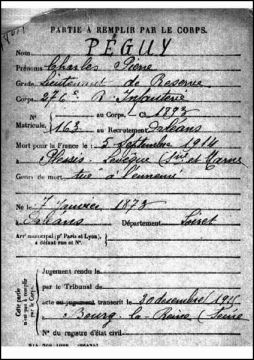 PARTIE À REMPLIR PAR LE CORPS.
Nom PÉGUY
Prénoms Charles Pierre
Grade Lieutenant de Réserve
Corps 276e R. Infanterie
N° au Corps. — Cl. 1893
Matricule. 163 au Recrutement Orléans
Mort pour la France le 5 septembre 1914
à Plessis-l'Evêque (S. et Marne
Genre de mort tué à l'ennemi
Né le 7 Janvier 1873
à Orléans Département Loiret
Arr¹ municipal (pʳ Paris et Lyon),
à défaut rue et N°.
Cette partie
n'est pas à remplir
par le Corps.
Jugement rendu le
par le Tribunal de
acte ou jugement transcrit le 30 décembre 1915
à Bourg-la-Reine (Seine
N° du registre d'état civil